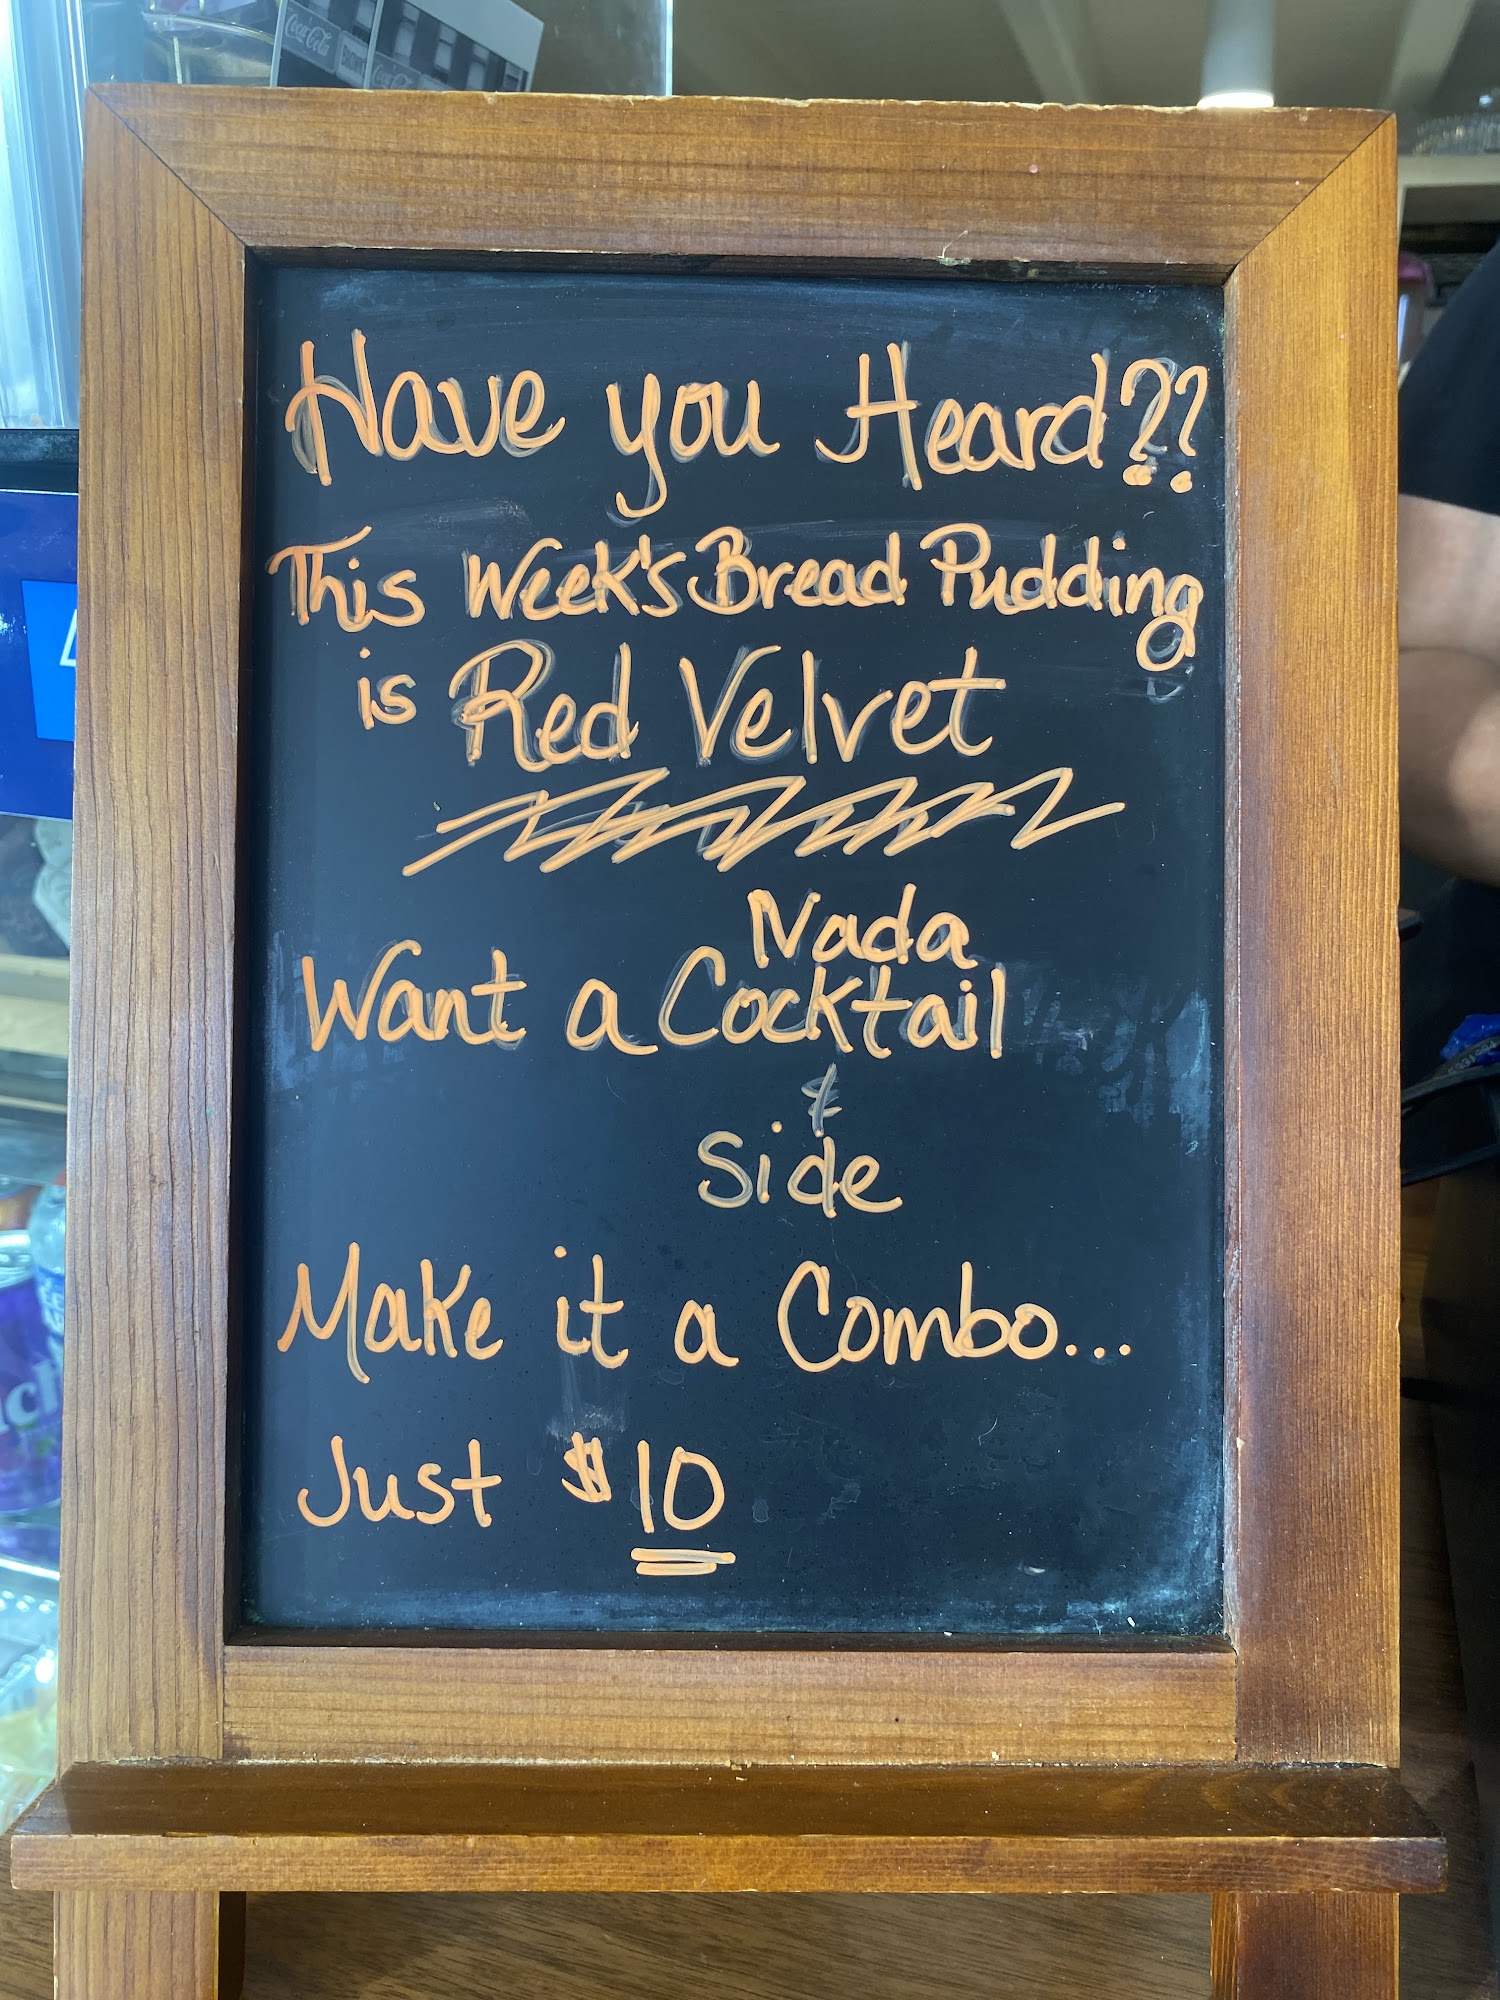 Coca-Cola
Have you Heard??
This Week's Bread Pudding
is Red Velvet
Nada
Want a Cocktail
&
Side
Make it a Combo...
Just $10